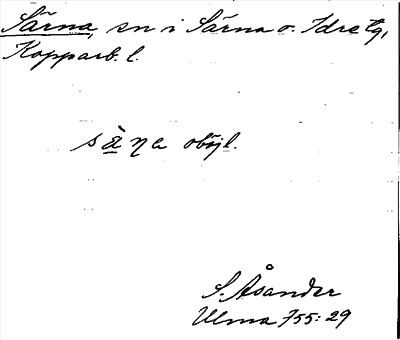 Särna, sn i Särna o. Idre tg,
Kopparb. l.
sä̀ŋa oböjl.
S. Åsander
Ulma 755:29